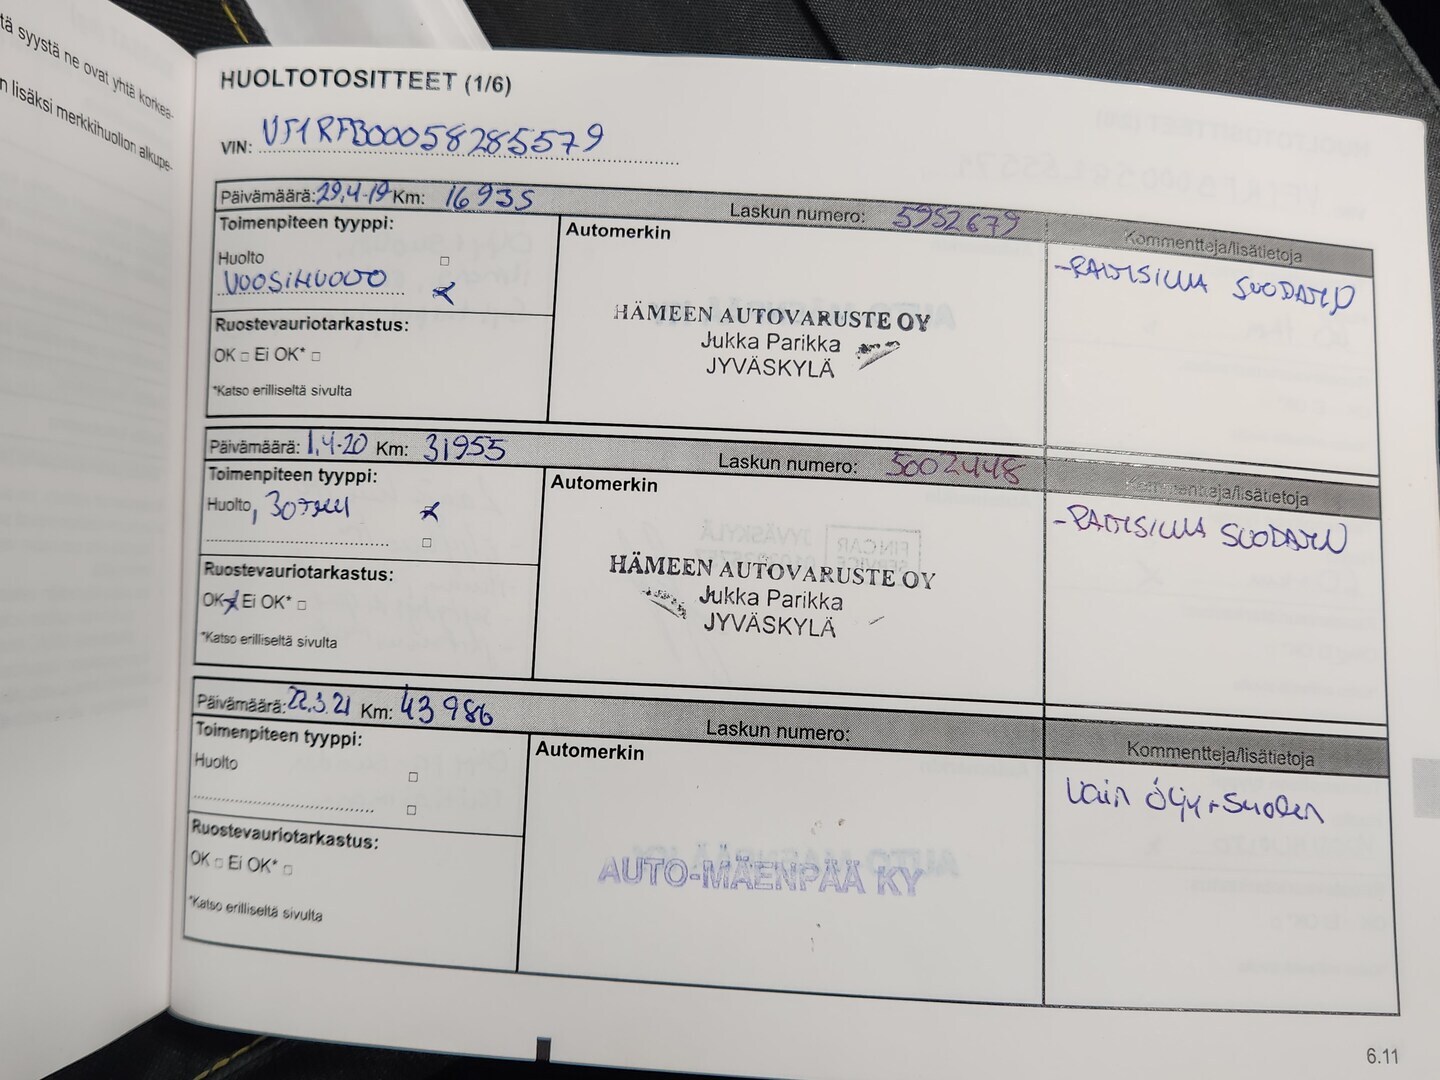 tä syystä ne ovat yhtä korkea-
n lisäksi merkkihuollon alkupe-
HUOLTOTOSITTEET (1/6)
VIN: VF1RFB00058285579
Päivämäärä: 29.4-19 Km: 16935
Laskun numero: 5952679
Kommentteja/lisätietoja
Toimenpiteen tyyppi:
Huolto
VUOSIHUOLTO
Ruostevauriotarkastus:
OK Ei OK*
*Katso erilliseltä sivulta
Automerkin
HÄMEEN AUTOVARUSTE OY
Jukka Parikka
JYVÄSKYLÄ
-RAITISILMA SUODATIN
Päivämäärä: 1.4-20 Km: 31955
Laskun numero: 5002448
Kommentteja/lisätietoja
Toimenpiteen tyyppi:
Huolto, 30TKM
Ruostevauriotarkastus:
OK Ei OK*
*Katso erilliseltä sivulta
Automerkin
HÄMEEN AUTOVARUSTE OY
Jukka Parikka
JYVÄSKYLÄ
-RAITISILMA SUODATIN
Päivämäärä: 22.3.21 Km: 43 986
Laskun numero:
Kommentteja/lisätietoja
Toimenpiteen tyyppi:
Huolto
Ruostevauriotarkastus:
OK Ei OK*
*Katso erilliseltä sivulta
Automerkin
AUTO-MÄENPÄÄ KY
Vain öljy+suodin
6.11